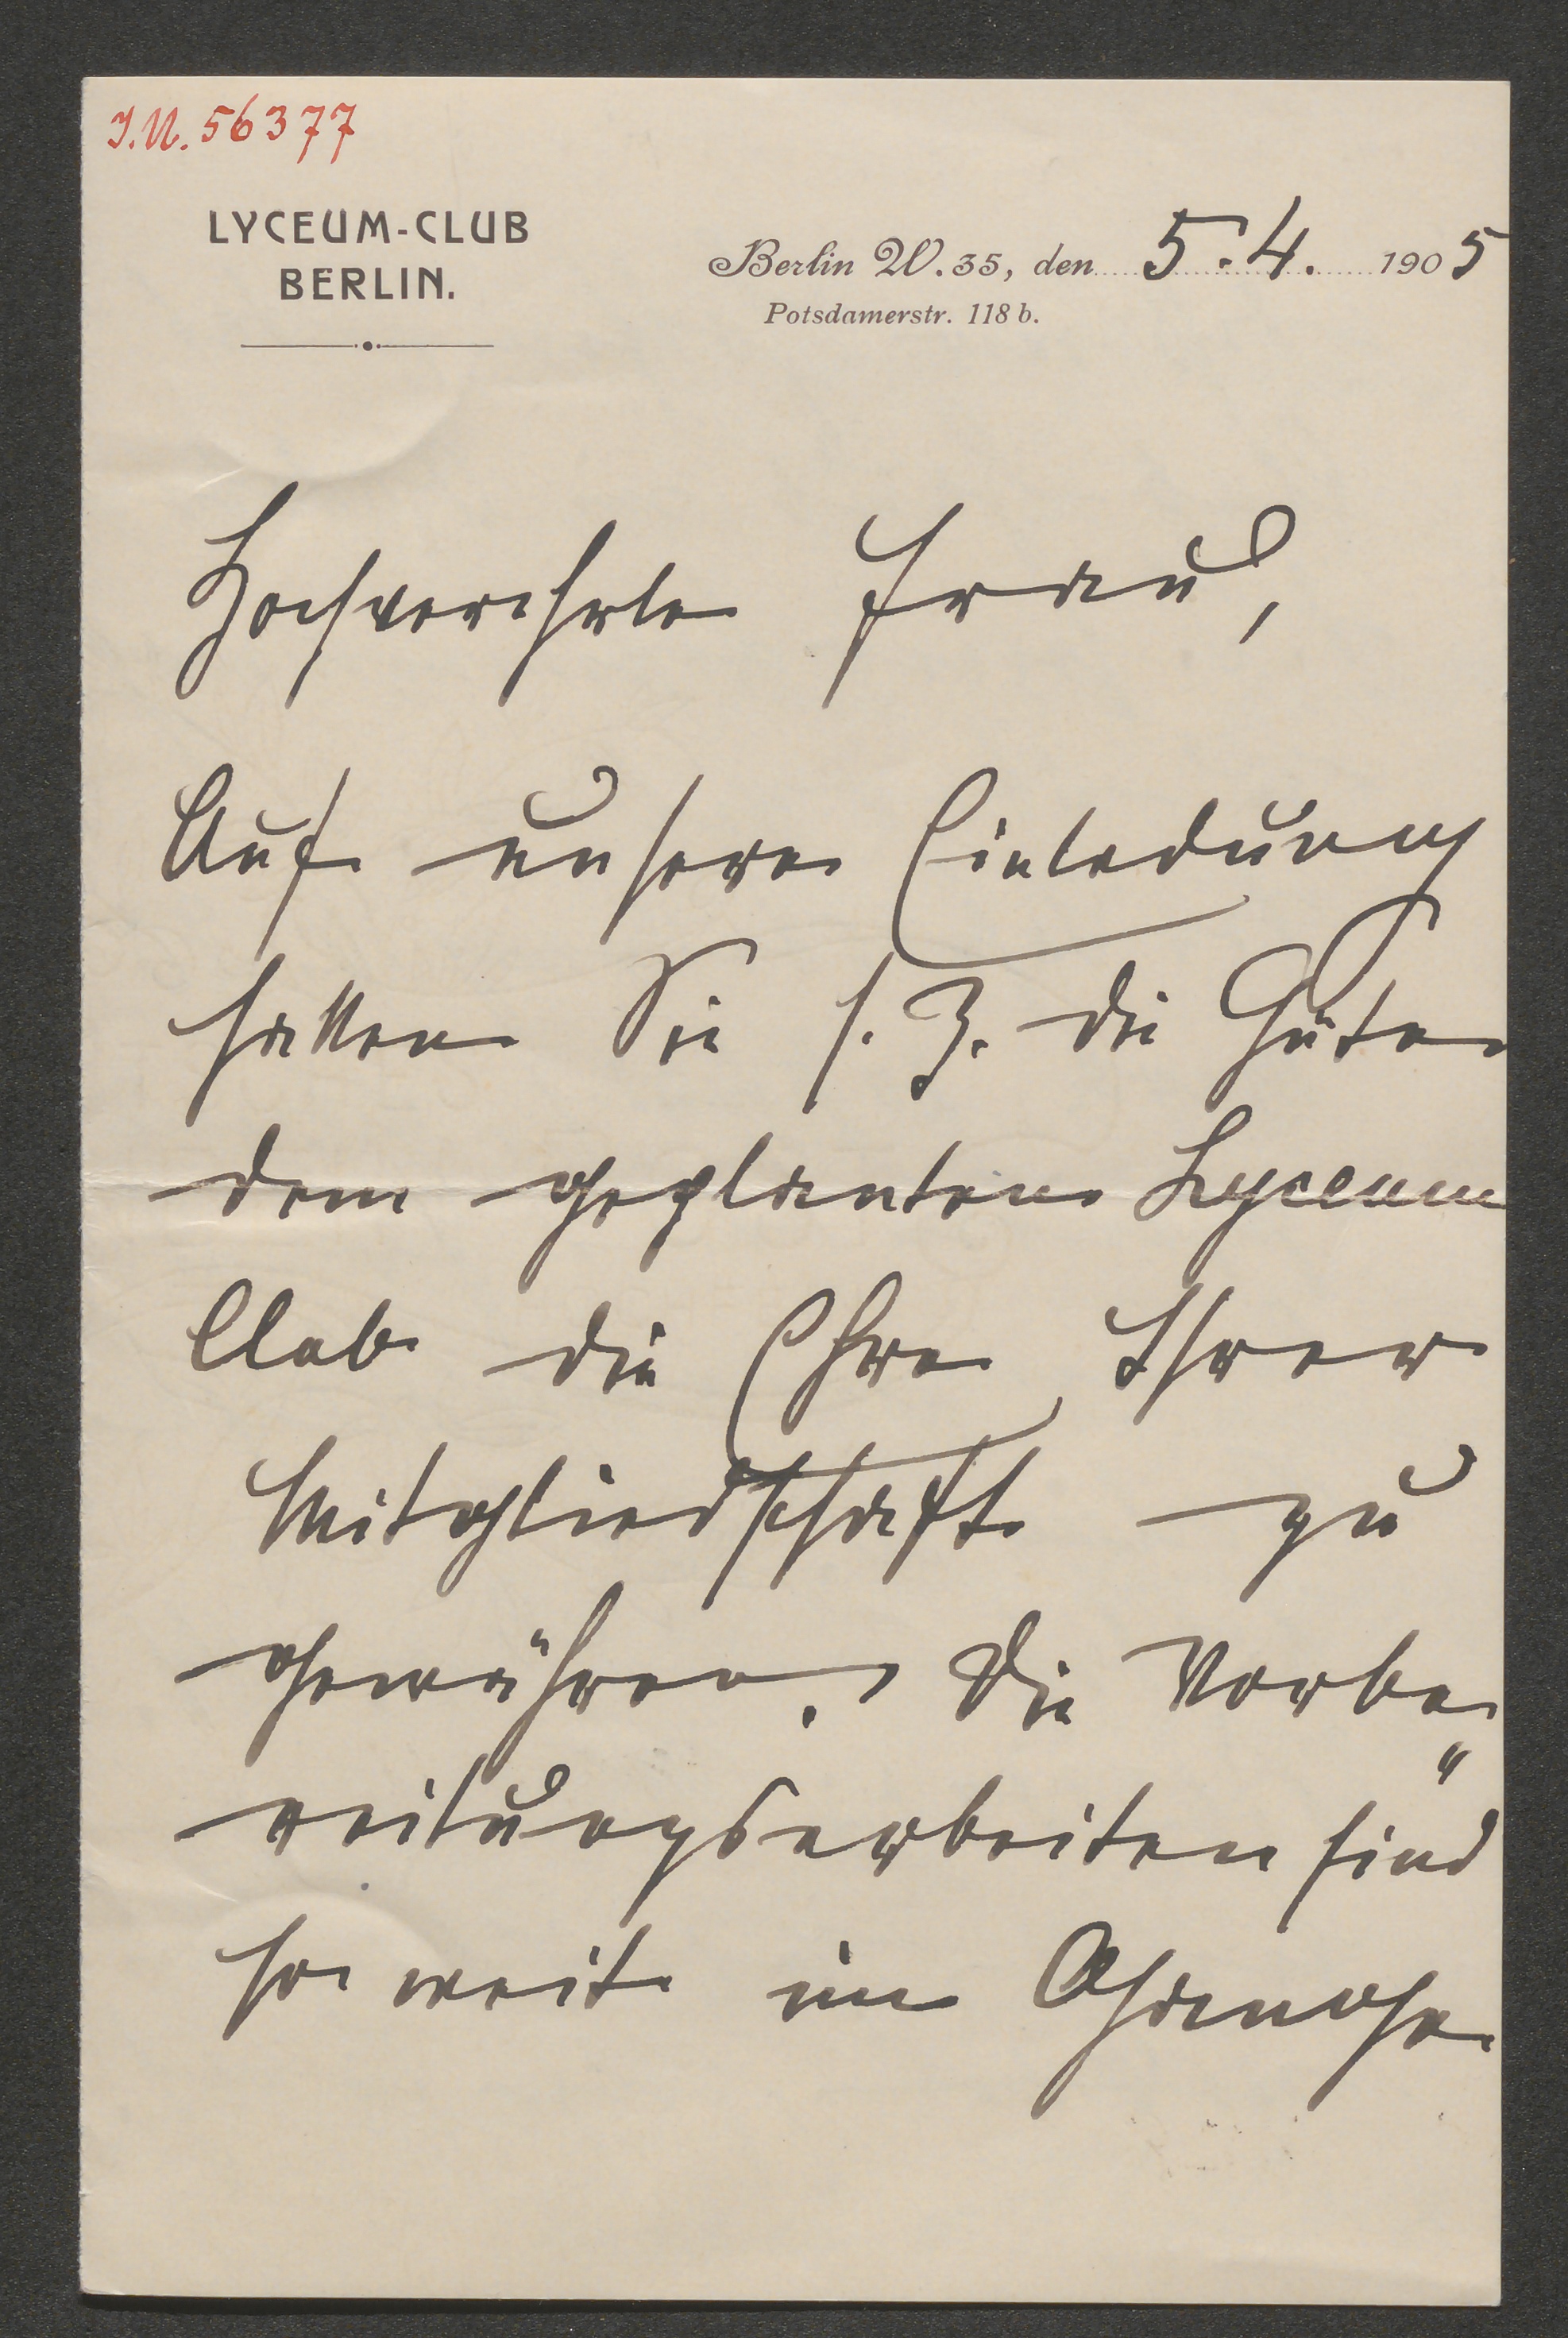 I.N. 56377
LYCEUM-CLUB
BERLIN.
Berlin W. 35, den 5. 4. 1905
Potsdamerstr. 118 b.
Hochverehrte Frau,
Auf unsere Einladung
hatten Sie s. Z. die Güte
dem geplanten Lyceum
Club die Ehre Ihrer
Mitgliedschaft zu
gewähren. Die Vorbe
reitungsarbeiten sind
so weit im Gange